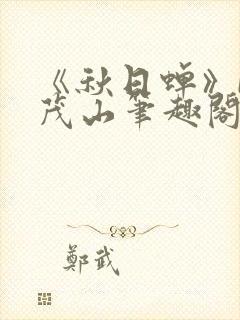 《秋日蝉》
茂山笔趣阁
鄭武